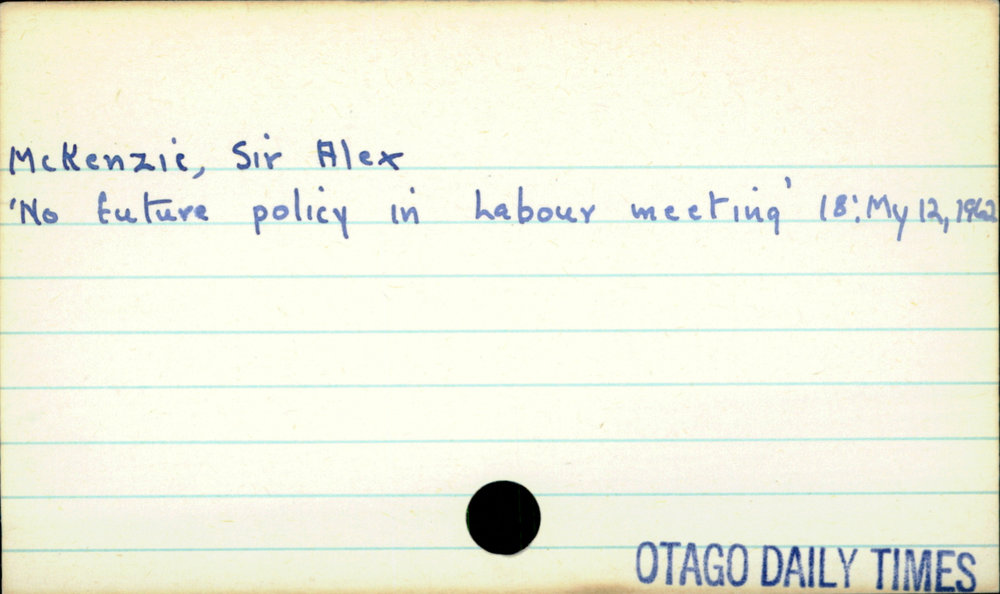 McKenzie, Sir Alex
'No future policy in Labour meeting' 18: My 12, 1962
OTAGO DAILY TIMES